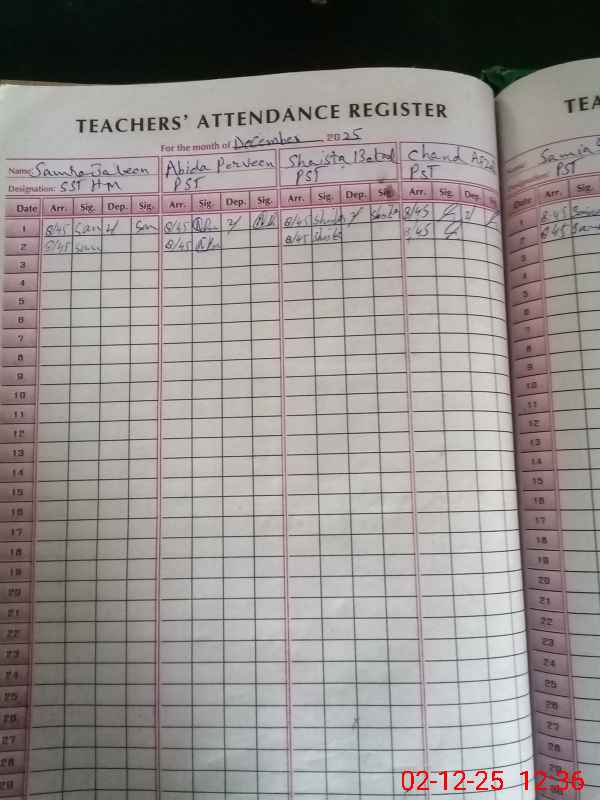 TEACHERS' ATTENDANCE REGISTER
For the month of December 2025
Name: Samra Jabeen Abida Perveen Shaista Batool Chand
Designation: SST HM PST PST PST
Date Arr. Sig. Dep. Sig. Arr. Sig. Dep. Sig. Arr. Sig. Dep. Sig. Arr. Sig. Dep. Sig.
1 8/45 2/ 8/45 2/ 8/45 2/ 8/45 2/
2 8/45 8/45 8/45 8/45
3
4
5
6
7
8
9
10
11
12
13
14
15
16
17
18
19
20
21
22
23
24
25
26
27
28
29
TEA
Name: Samia
Designation: PST
Date Arr. Sig.
1 8:45
2 8:45
3
4
5
6
7
8
9
10
11
12
13
14
15
16
17
18
19
20
21
22
23
24
25
26
27
28
29
02-12-25 12:36